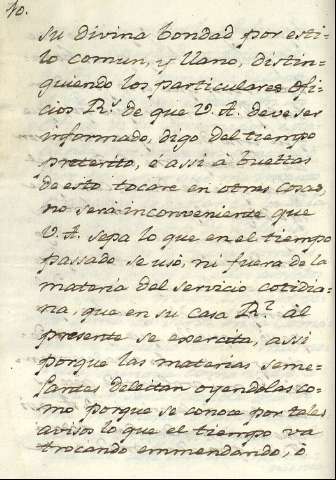 40.
su divina bondad por esti-
lo comun, y llano, distin-
guiendo los particulares ofi-
cios R.s de que V. A. deve ser
informado, digo del tiempo
preterito, è assi à bueltas
de esto tocare en otras cosas,
no serà inconveniente que
V. A. sepa lo que en el tiempo
passado se usò, ni fuera de la
materia del servicio cotidia-
na, que en su casa R.l al
presente se exercita, assi
porque las materias seme-
jantes deleitan oyendolas co-
mo porque se conoce por tales
avisos lo que el tiempo va
trocando emmendando, ò